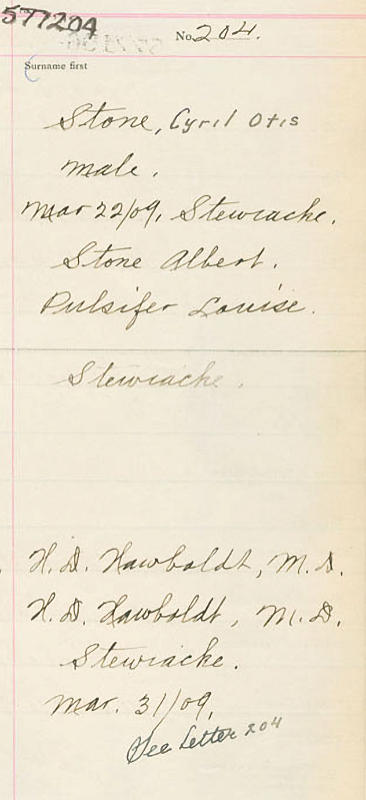 577204
No. 204.
Surname first
Stone, Cyril Otis
Male.
Mar 22/09, Stewiacke.
Stone Albert.
Pulsifer Louise.
Stewiacke.
H. D. Hawboldt, M. D.
H. D. Hawboldt, M. D.
Stewiacke.
Mar. 31/09,
See Letter 204